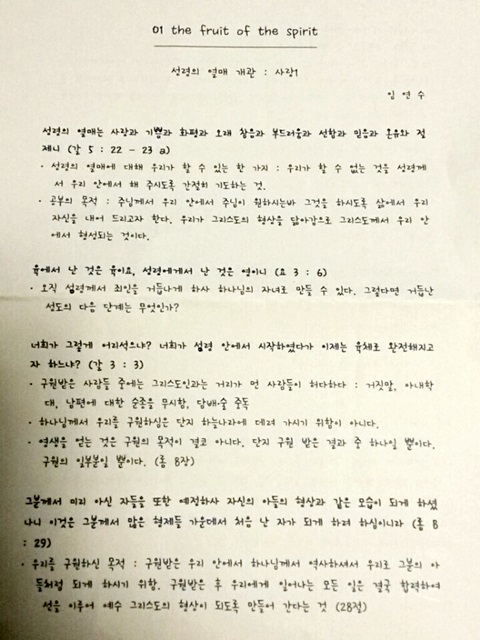 01 the fruit of the spirit
성령의 열매 개관 : 사랑1
임 연 수
성령의 열매는 사랑과 기쁨과 화평과 오래 참음과 부드러움과 선함과 믿음과 온유와 절
제니 (갈 5 : 22 - 23 a)
· 성령의 열매에 대해 우리가 할 수 있는 한 가지 : 우리가 할 수 없는 것을 성령께
서 우리 안에서 해 주시도록 간절히 기도하는 것.
· 공부의 목적 : 주님께서 우리 안에서 주님이 원하시는바 그것을 하시도록 삶에서 우리
자신을 내어 드리고자 한다. 우리가 그리스도의 형상을 닮아감으로 그리스도께서 우리 안
에서 형성되는 것이다.
육에서 난 것은 육이요, 성령에게서 난 것은 영이니 (요 3 : 6)
· 오직 성령께서 죄인을 거듭나게 하사 하나님의 자녀로 만들 수 있다. 그렇다면 거듭난
성도의 다음 단계는 무엇인가?
너희가 그렇게 어리석으냐? 너희가 성령 안에서 시작하였다가 이제는 육체로 완전해지고
자 하느냐? (갈 3 : 3)
· 구원받은 사람들 중에는 그리스도인과는 거리가 먼 사람들이 허다하다 : 거짓말, 아내학
대, 남편에 대한 순종을 무시함, 담배·술 중독
· 하나님께서 우리를 구원하심은 단지 하늘나라에 데려 가시기 위함이 아니다.
· 영생을 얻는 것은 구원의 목적이 결코 아니다. 단지 구원 받은 결과 중 하나일 뿐이다.
구원의 일부분일 뿐이다. (롬 8장)
그분께서 미리 아신 자들을 또한 예정하사 자신의 아들의 형상과 같은 모습이 되게 하셨
나니 이것은 그분께서 많은 형제들 가운데서 처음 난 자가 되게 하려 하심이니라 (롬 8
: 29)
· 우리를 구원하신 목적 : 구원받은 우리 안에서 하나님께서 역사하셔서 우리로 그분의 아
들처럼 되게 하시기 위함. 구원받은 후 우리에게 일어나는 모든 일은 결국 합력하여
선을 이루어 예수 그리스도의 형상이 되도록 만들어 간다는 것 (28절)